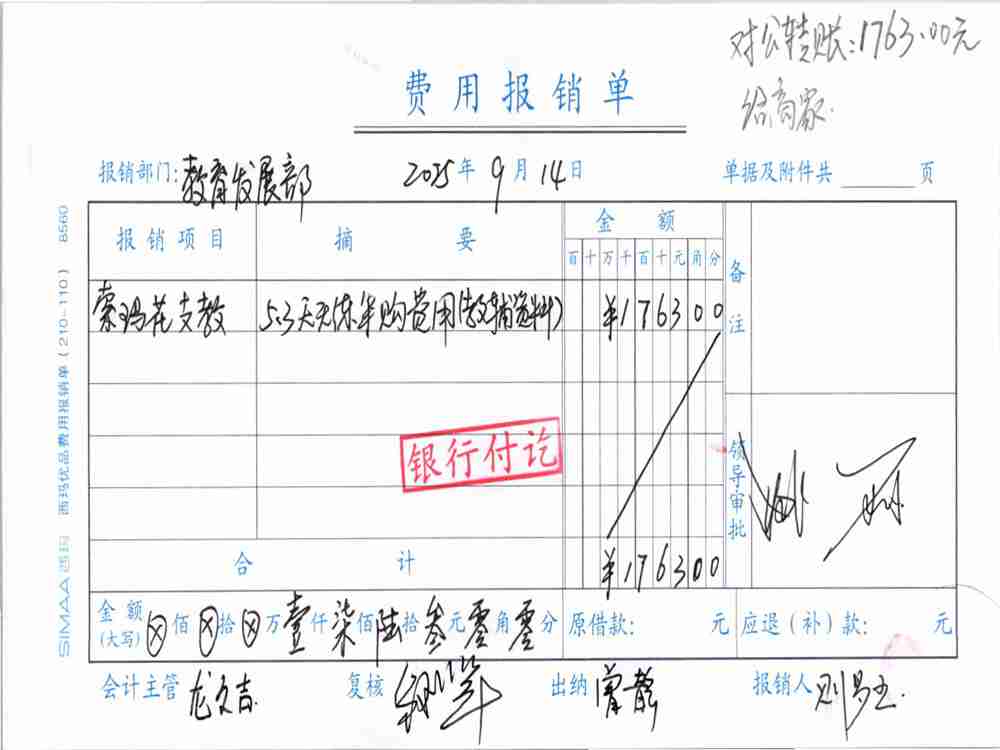 对公转账:1763.00元
给商家.
费用报销单
报销部门:教育发展部 2025年9月14日 单据及附件共 页
报销项目 摘要 金额 备注
百十万千百十元角分
索玛花支教 ¥176300
银行付讫
领导审批
合计 ¥176300
金额(大写) ⊗佰⊗拾⊗万壹仟柒佰陆拾叁元零角零分 原借款: 元 应退(补)款: 元
会计主管 龙文吉 复核 出纳 曾静 报销人
SIMAA 西玛 西玛优品费用报销单(210-110) 8560